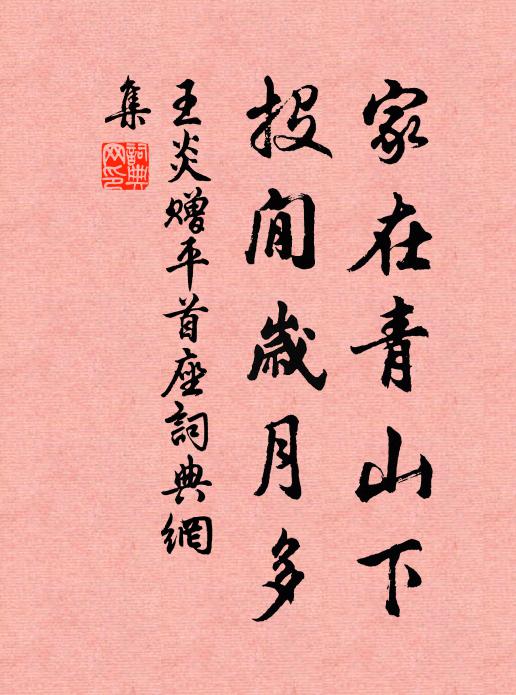 家在青山下
投閒歲月多
王炎赠平首座詞典網
集
詞典
网印